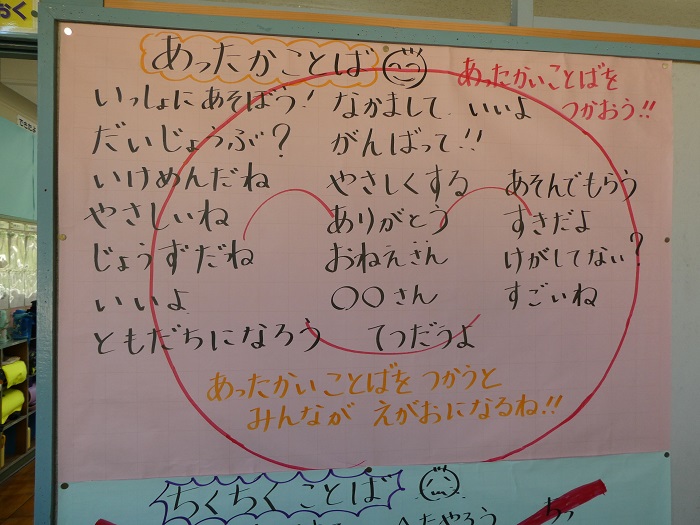 あったかことば
あったかいことばを
つかおう!!
いっしょにあそぼう! なかまして いいよ
だいじょうぶ? がんばって!!
いけめんだね やさしくする あそんでもらう
やさしいね ありがとう すきだよ
じょうずだね おねえさん けがしてない?
いいよ ○○さん すごいね
ともだちになろう てつだうよ
あったかいことばをつかうと
みんなが えがおになるね!!
ちくちくことば